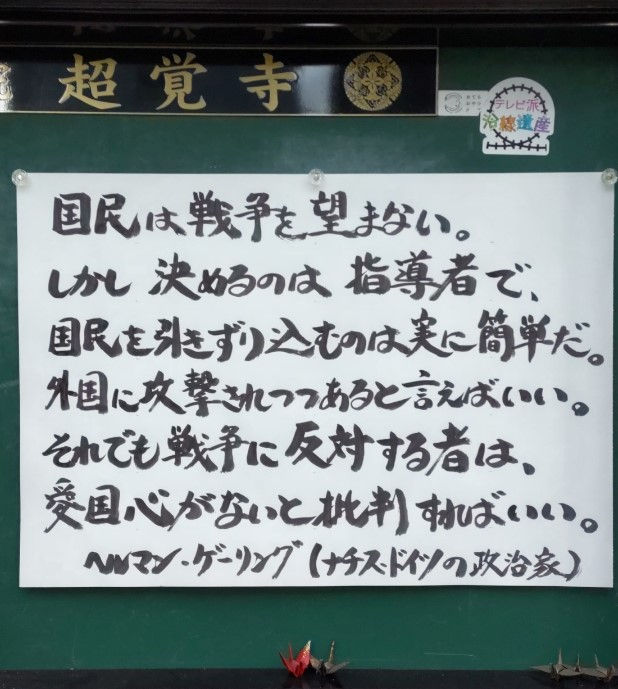 超覚寺
テレビ派
沿線遺産
国民は戦争を望まない。
しかし決めるのは指導者で、
国民を引きずり込むのは実に簡単だ。
外国に攻撃されつつあると言えばいい。
それでも戦争に反対する者は、
愛国心がないと批判すればいい。
ヘルマン・ゲーリング(ナチス・ドイツの政治家)